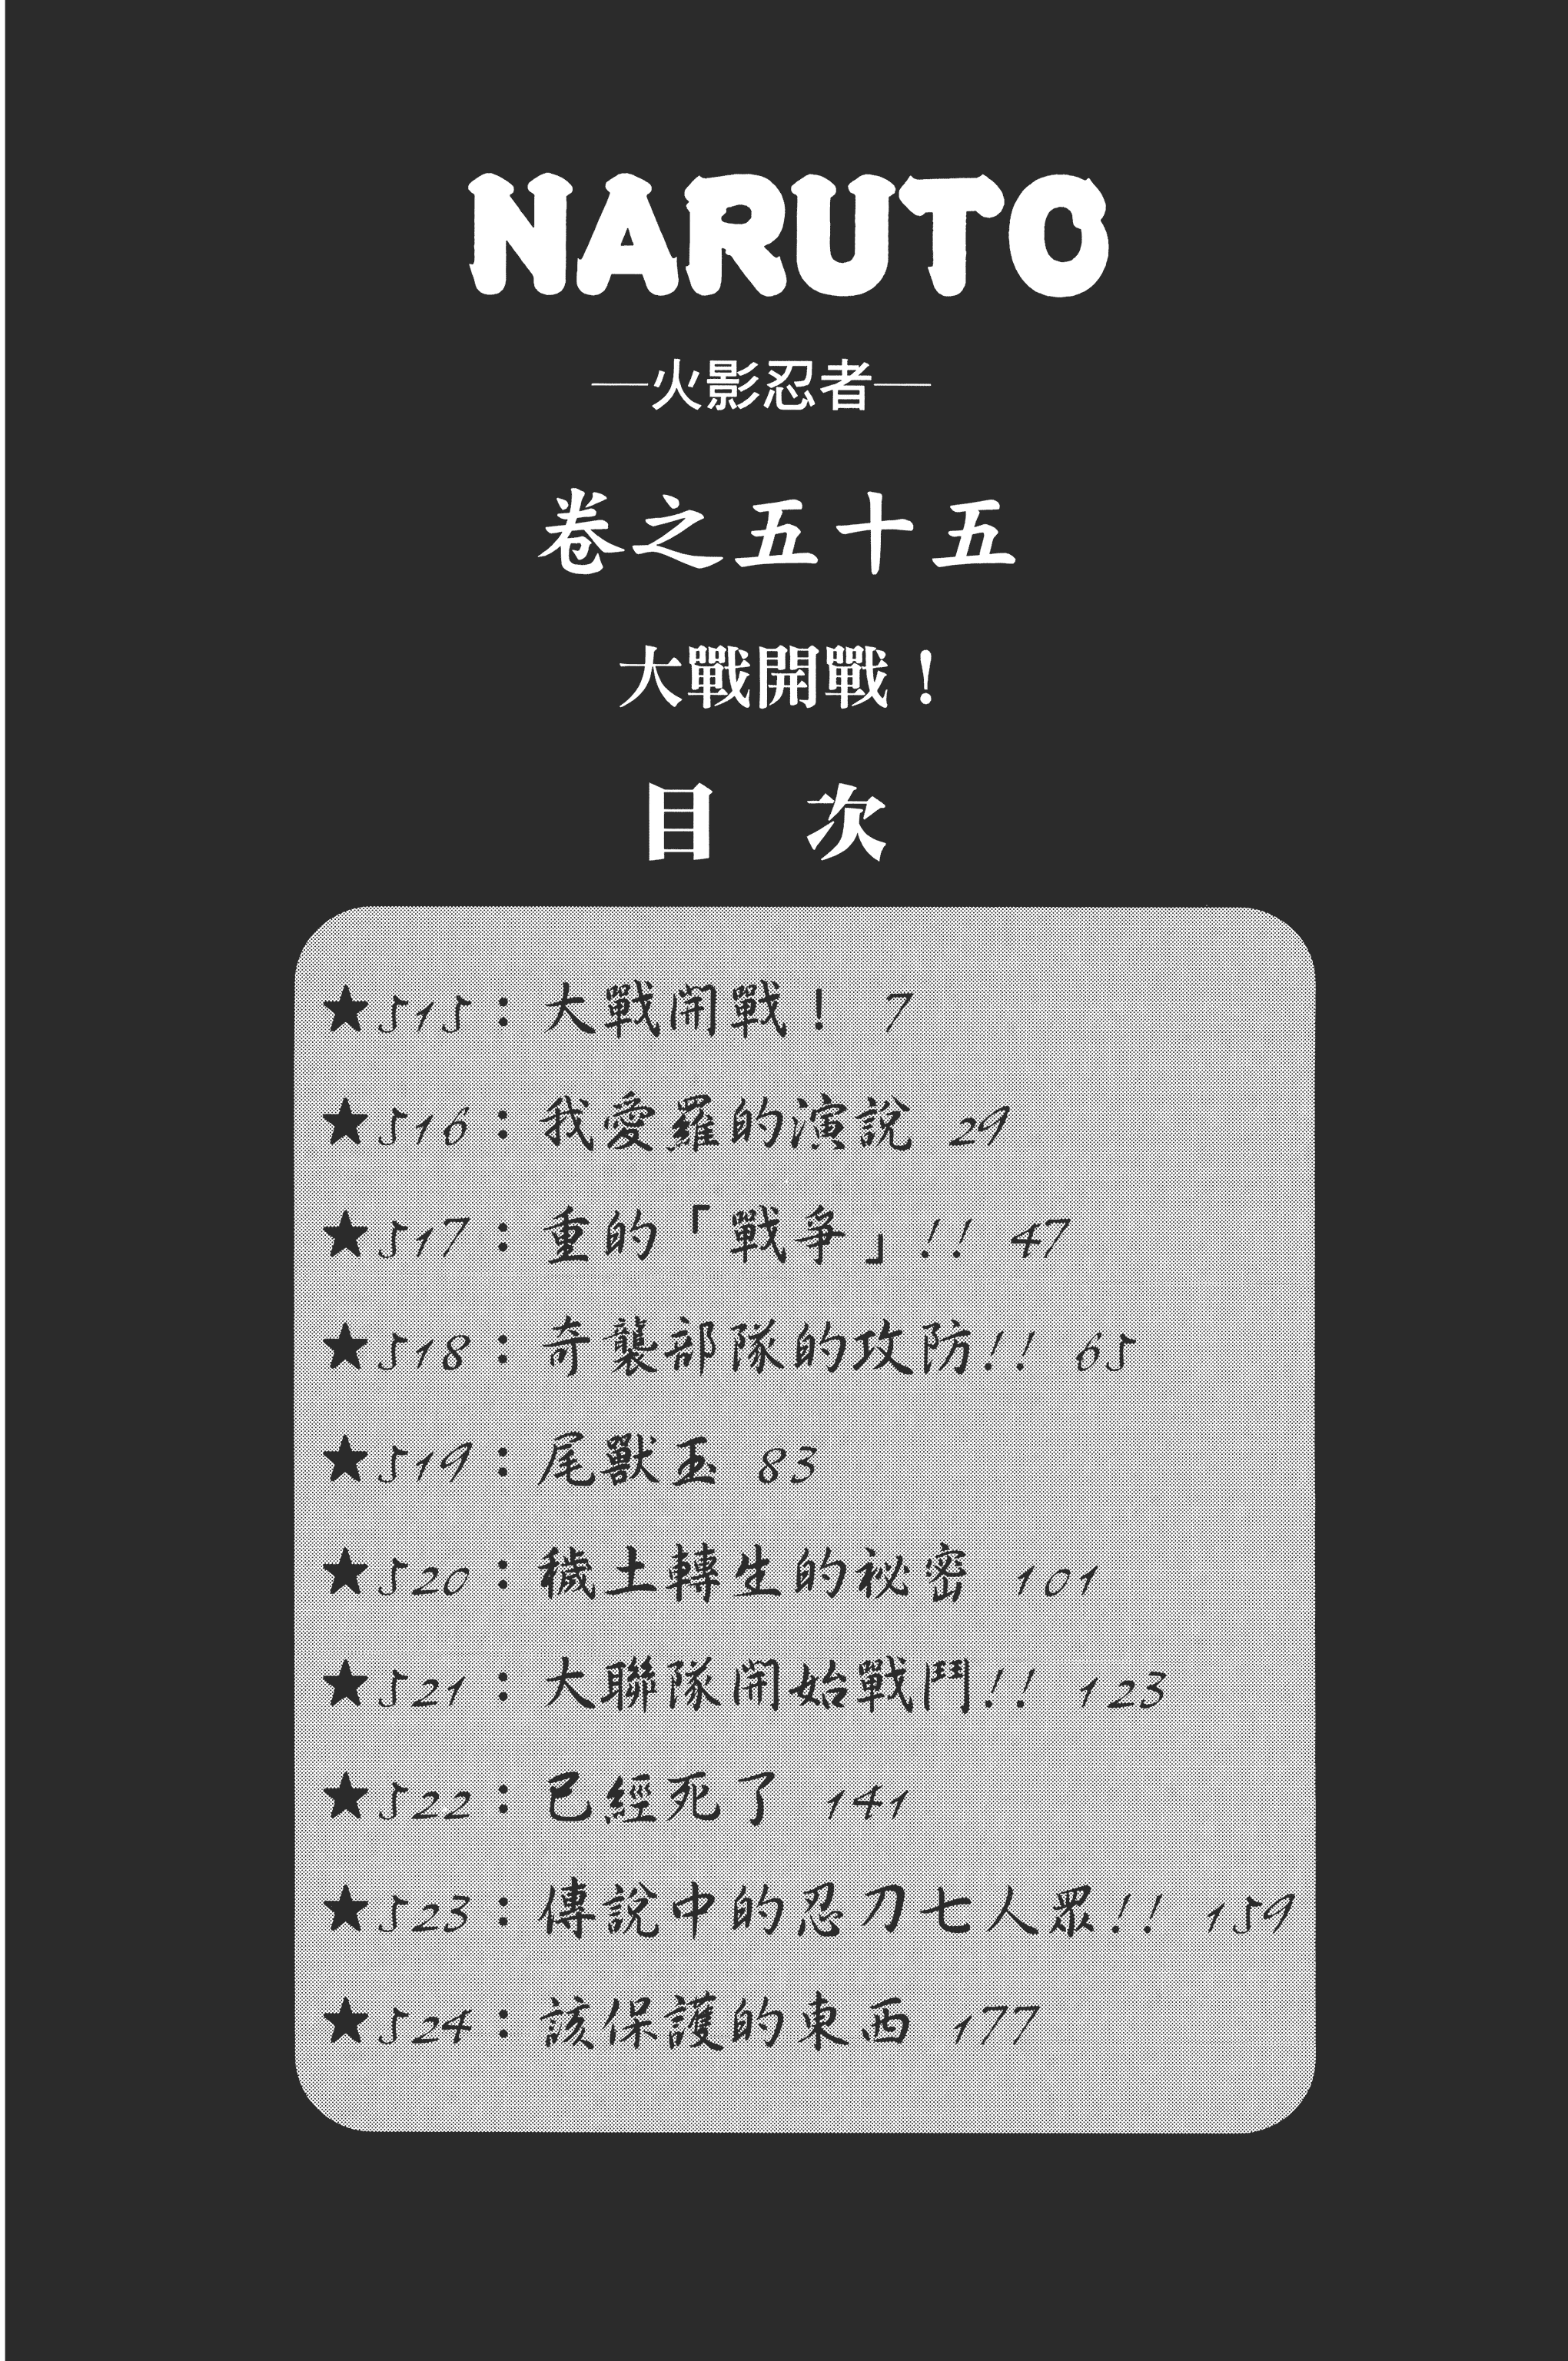 NARUTO
—火影忍者—
卷之五十五
大戰開戰！
目 次
★515：大戰開戰！ 7
★516：我愛羅的演說 29
★517：重的「戰爭」!! 47
★518：奇襲部隊的攻防!! 65
★519：尾獸玉 83
★520：穢土轉生的祕密 101
★521：大聯隊開始戰鬥!! 123
★522：已經死了 141
★523：傳說中的忍刀七人眾!! 159
★524：該保護的東西 177